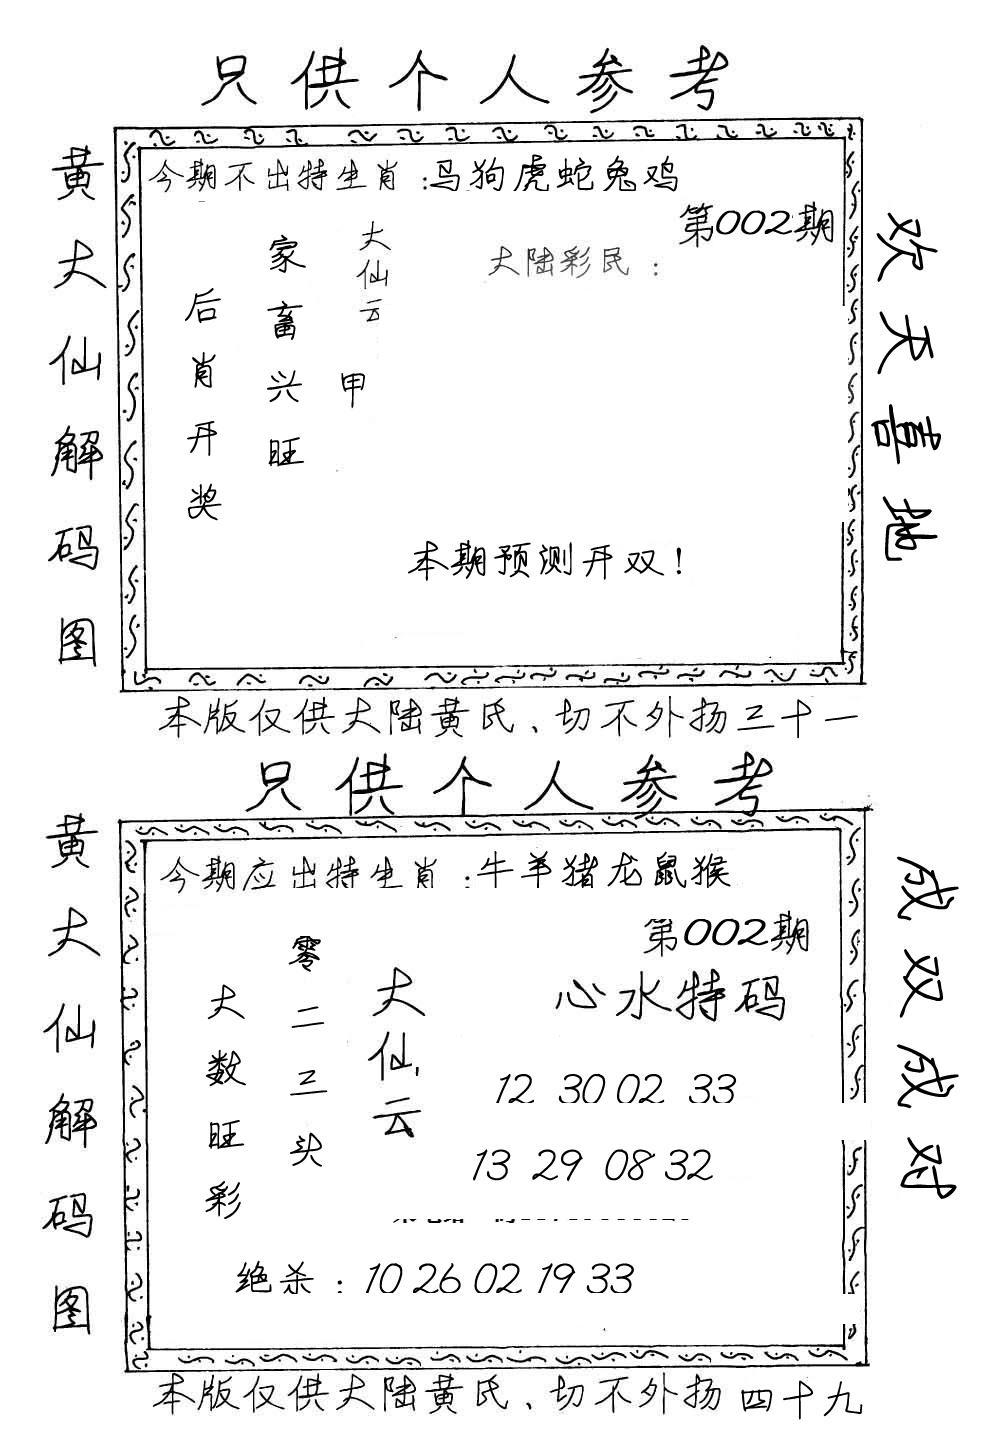 只供个人参考
黄大仙解码图
今期不出特生肖:马狗虎蛇兔鸡
第002期
大陆彩民:
大仙云
甲
家畜兴旺
后肖开奖
本期预测开双!
欢天喜地
本版仅供大陆黄氏、切不外扬三十一
只供个人参考
黄大仙解码图
今期应出特生肖:牛羊猪龙鼠猴
第002期
心水特码
大仙云
零二三头
大数旺彩
12 30 02 33
13 29 08 32
绝杀:10 26 02 19 33
成双成对
本版仅供大陆黄氏、切不外扬四十九